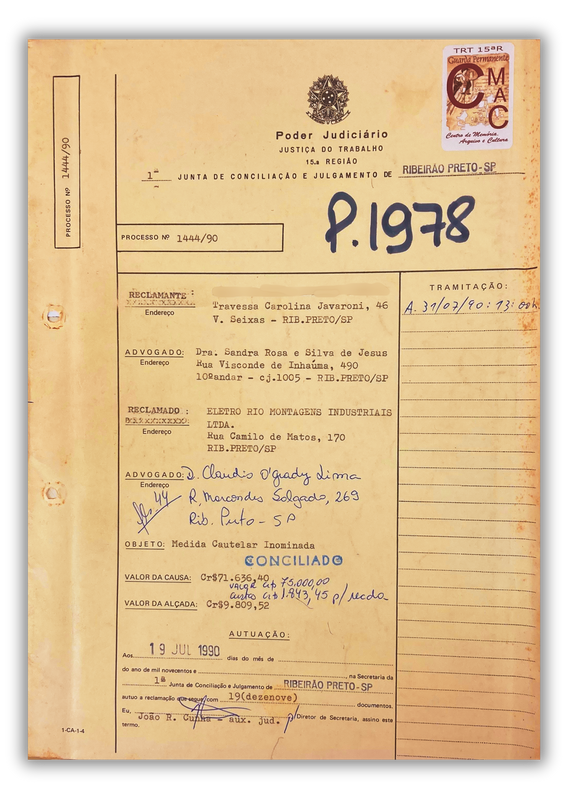 TRT 15ªR
Guarda Permanente
CMAC
Centro de Memória,
Arquivo e Cultura
Poder Judiciário
JUSTIÇA DO TRABALHO
15.a REGIÃO
1ª JUNTA DE CONCILIAÇÃO E JULGAMENTO DE RIBEIRÃO PRETO-SP
PROCESSO Nº 1444/90
P.1978
PROCESSO Nº 1444/90
TRAMITAÇÃO:
A. 31/07/90: 13:00h
RECLAMANTE:
Endereço
Travessa Carolina Javaroni, 46
V. Seixas - RIB.PRETO/SP
ADVOGADO: Dra. Sandra Rosa e Silva de Jesus
Endereço Rua Visconde de Inhaúma, 490
10ºandar - cj.1005 - RIB.PRETO/SP
RECLAMADO: ELETRO RIO MONTAGENS INDUSTRIAIS
LTDA.
Endereço Rua Camilo de Matos, 170
RIB.PRETO/SP
ADVOGADO: D. Claudio O'grady Lima
Endereço R. Marcondes Salgado, 269
fls. 44
Rib. Preto - SP
OBJETO: Medida Cautelar Inominada
CONCILIADO
VALOR DA CAUSA: Cr$71.636,40
valor Cr$ 75.000,00
custas Cr$ 1.843,45 p/ recda
VALOR DA ALÇADA: Cr$9.809,52
AUTUAÇÃO:
Aos 19 JUL 1990 dias do mês de
do ano de mil novecentos e , na Secretaria da
1ª Junta de Conciliação e Julgamento de RIBEIRÃO PRETO-SP
autuo a reclamação que segue com 19(dezenove) documentos.
Eu, João R. Cunha - aux. jud. p/ Diretor de Secretaria, assino este
termo.
1-CA-1-4